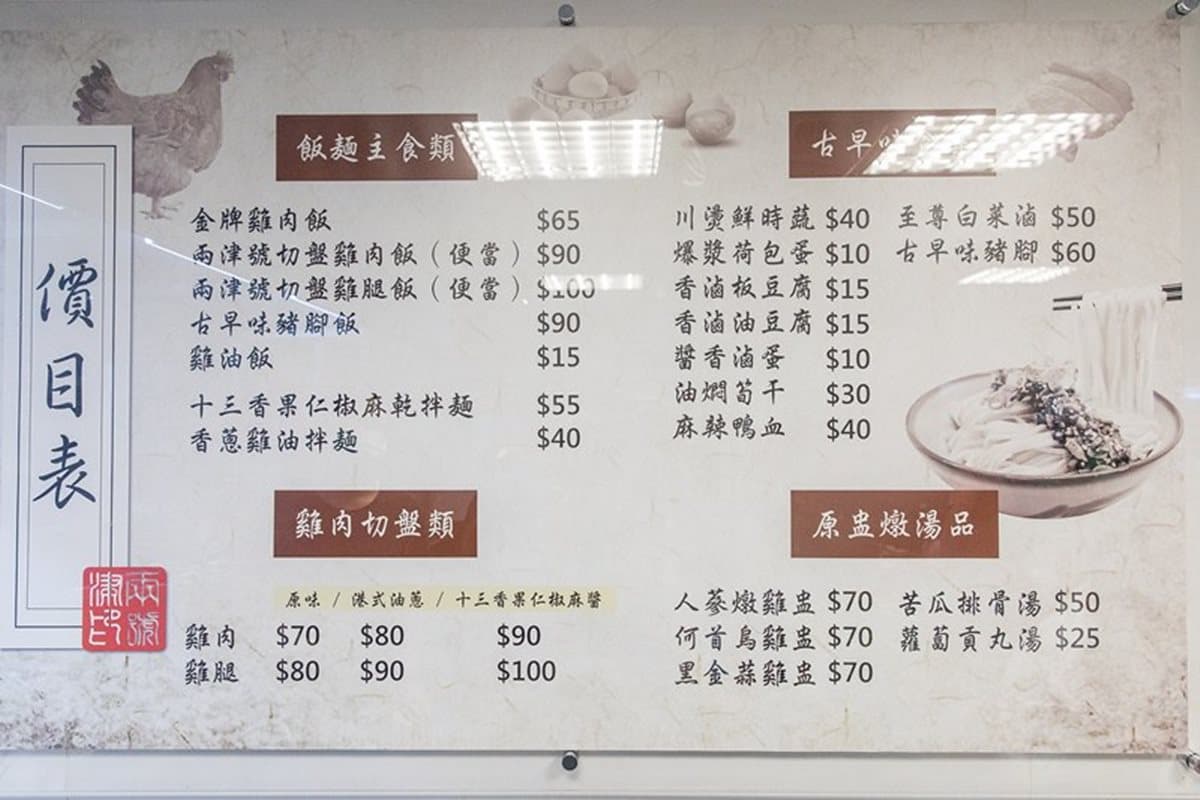 價目表
兩津號印
飯麵主食類
金牌雞肉飯 $65
兩津號切盤雞肉飯（便當） $90
兩津號切盤雞腿飯（便當） $100
古早味豬腳飯 $90
雞油飯 $15
十三香果仁椒麻乾拌麵 $55
香蔥雞油拌麵 $40
雞肉切盤類
原味 / 港式油蔥 / 十三香果仁椒麻醬
雞肉 $70 $80 $90
雞腿 $80 $90 $100
古早味
川燙鮮時蔬 $40
爆漿荷包蛋 $10
香滷板豆腐 $15
香滷油豆腐 $15
醬香滷蛋 $10
油燜筍干 $30
麻辣鴨血 $40
至尊白菜滷 $50
古早味豬腳 $60
原盅燉湯品
人蔘燉雞盅 $70
何首烏雞盅 $70
黑金蒜雞盅 $70
苦瓜排骨湯 $50
蘿蔔貢丸湯 $25